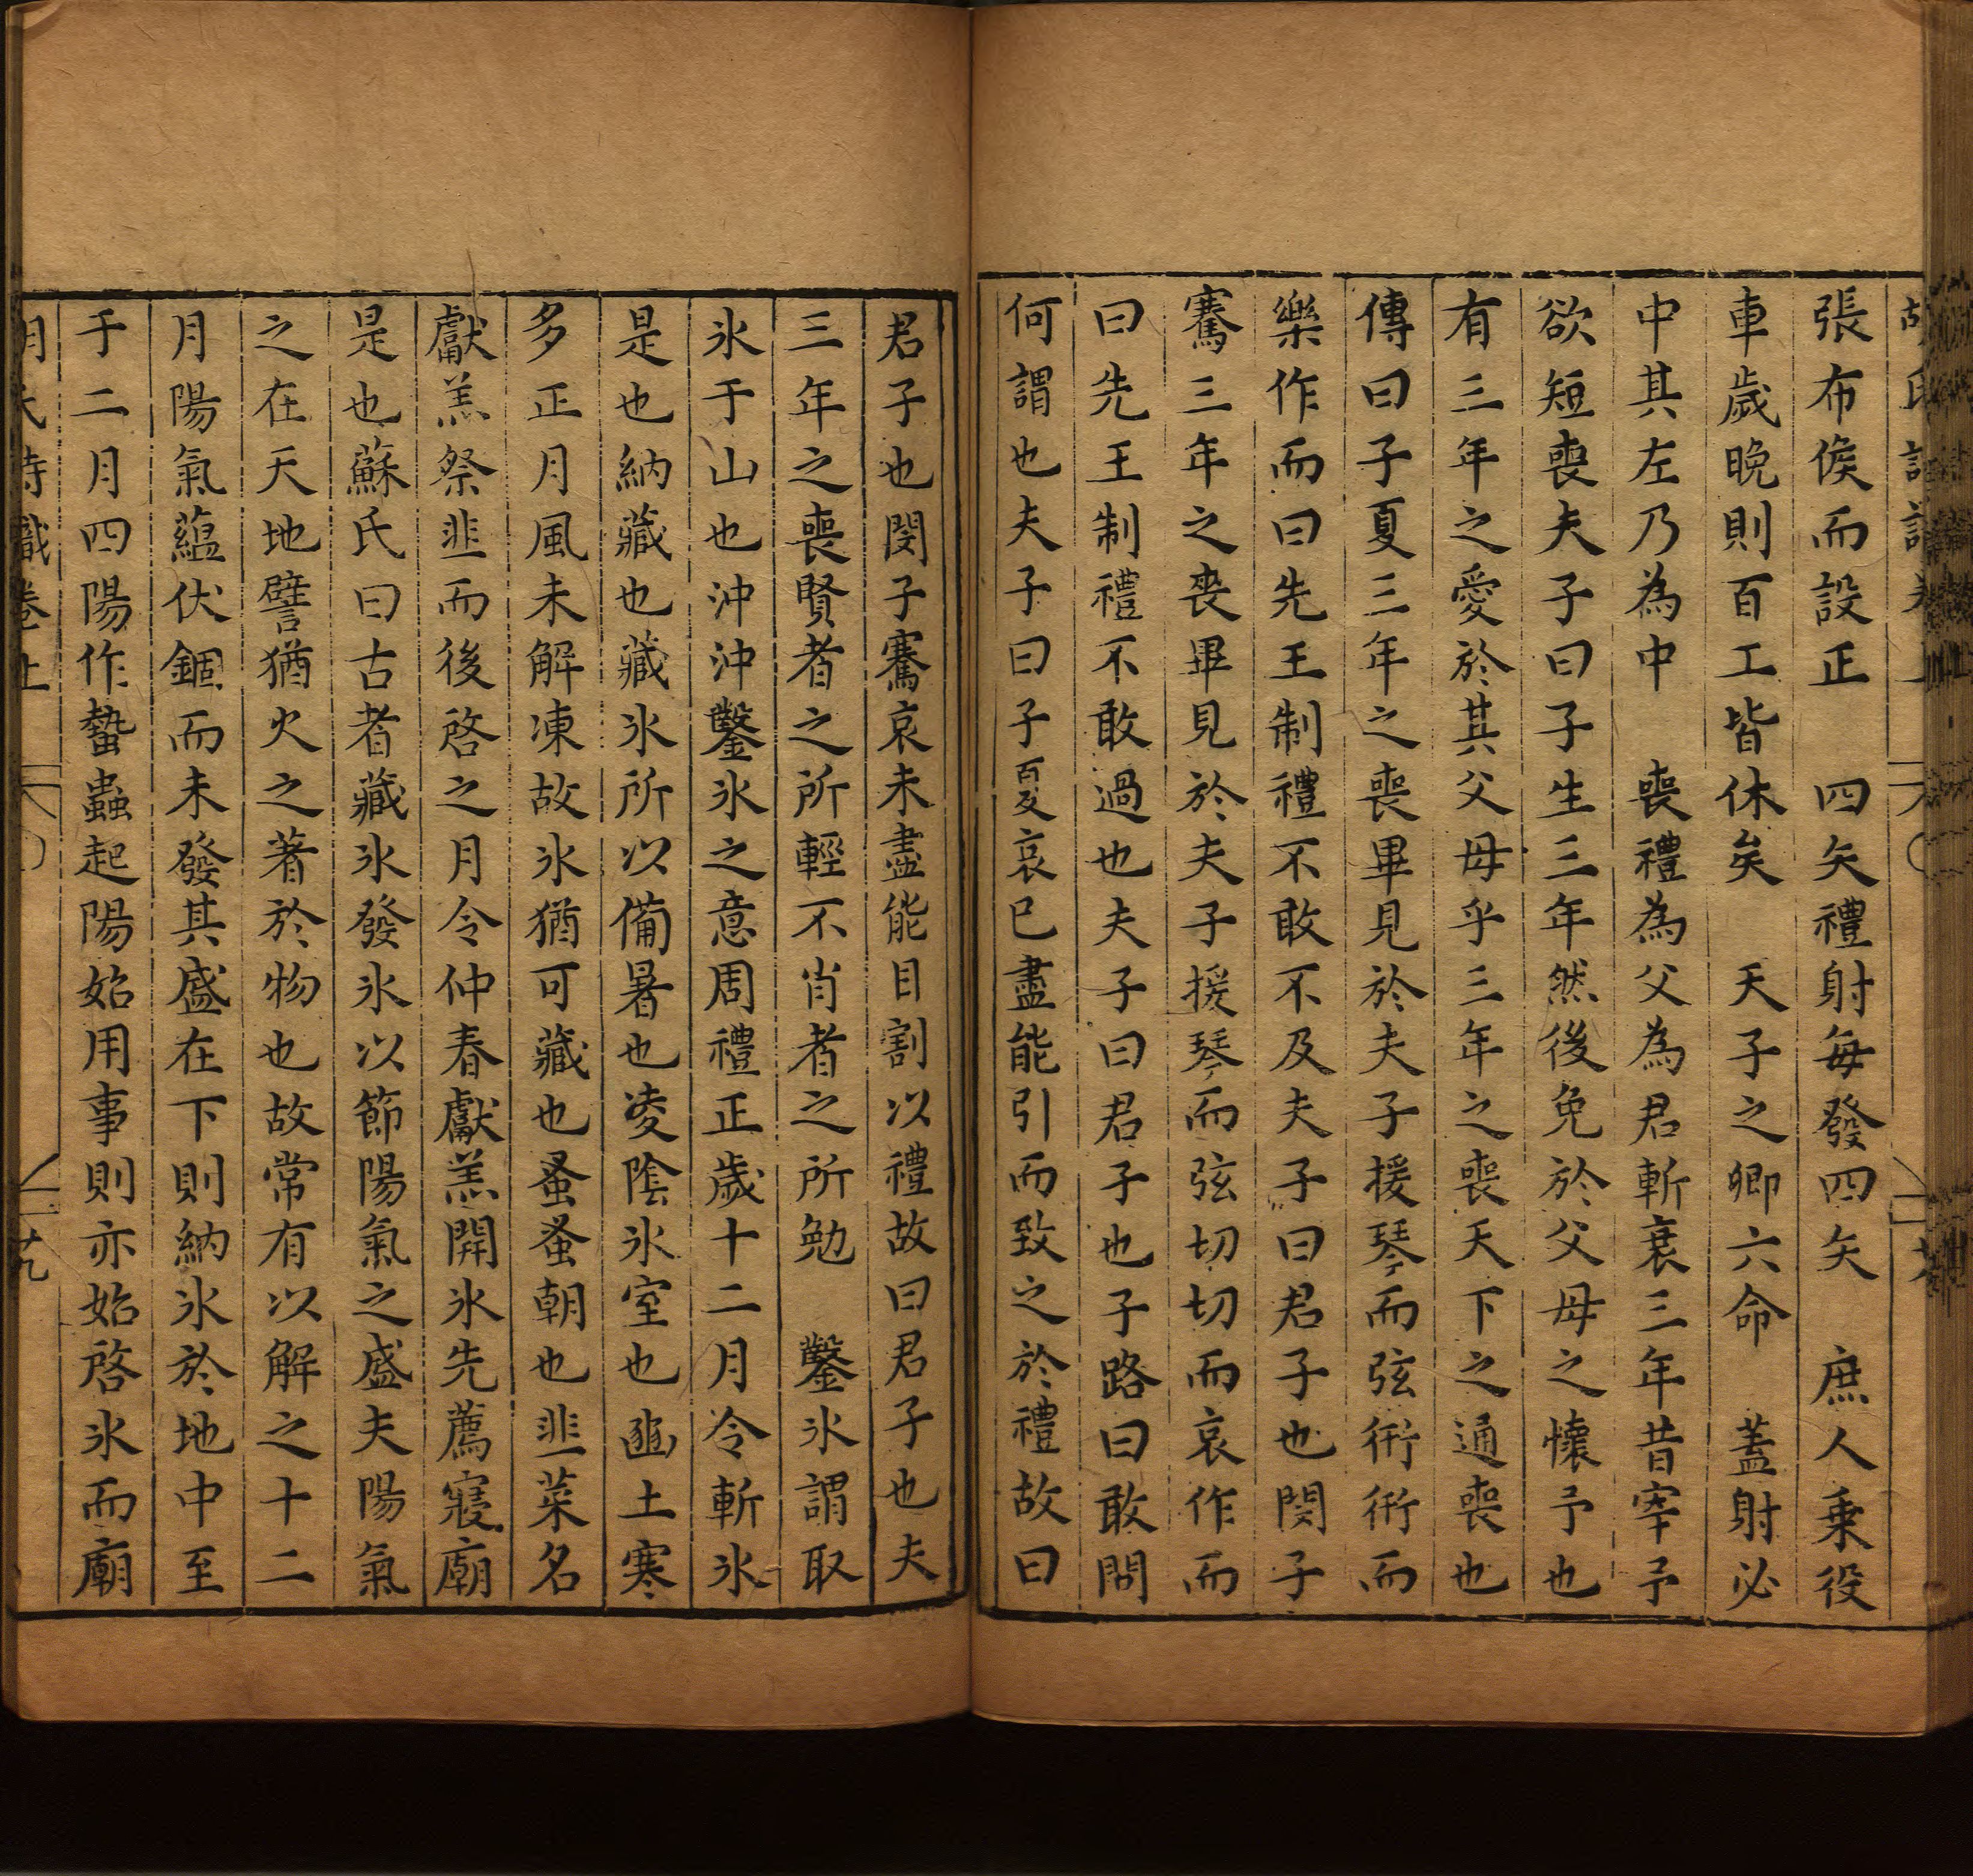 張布侯而設正　四矢禮射每發四矢　庶人乗役
車歲晚則百工皆休矣　天子之卿六命　蓋射必
中其左乃為中　喪禮為父為君斬衰三年昔宰予
欲短喪夫子曰子生三年然後免於父母之懷予也
有三年之愛於其父母乎三年之喪天下之通喪也
傳曰子夏三年之喪畢見於夫子援琴而弦衎衎而
樂作而曰先王制禮不敢不及夫子曰君子也閔子
騫三年之喪畢見於夫子援琴而弦切切而哀作而
曰先王制禮不敢過也夫子曰君子也子路曰敢問
何謂也夫子曰子夏哀已盡能引而致之於禮故曰
君子也閔子騫哀未盡能自割以禮故曰君子也夫
三年之喪賢者之所輕不肖者之所勉　鑿氷謂取
氷于山也沖沖鑿氷之意周禮正歲十二月令斬氷
是也納藏也藏氷所以備暑也凌陰氷室也豳土寒
多正月風未解凍故氷猶可藏也蚤蚤朝也韭菜名
獻羔祭韭而後啓之月令仲春獻羔開氷先薦寢廟
是也蘇氏曰古者藏氷發氷以節陽氣之盛夫陽氣
之在天地譬猶火之著於物也故常有以解之十二
月陽氣蘊伏錮而未發其盛在下則納氷於地中至
于二月四陽作蟄蟲起陽始用事則亦始啓氷而廟